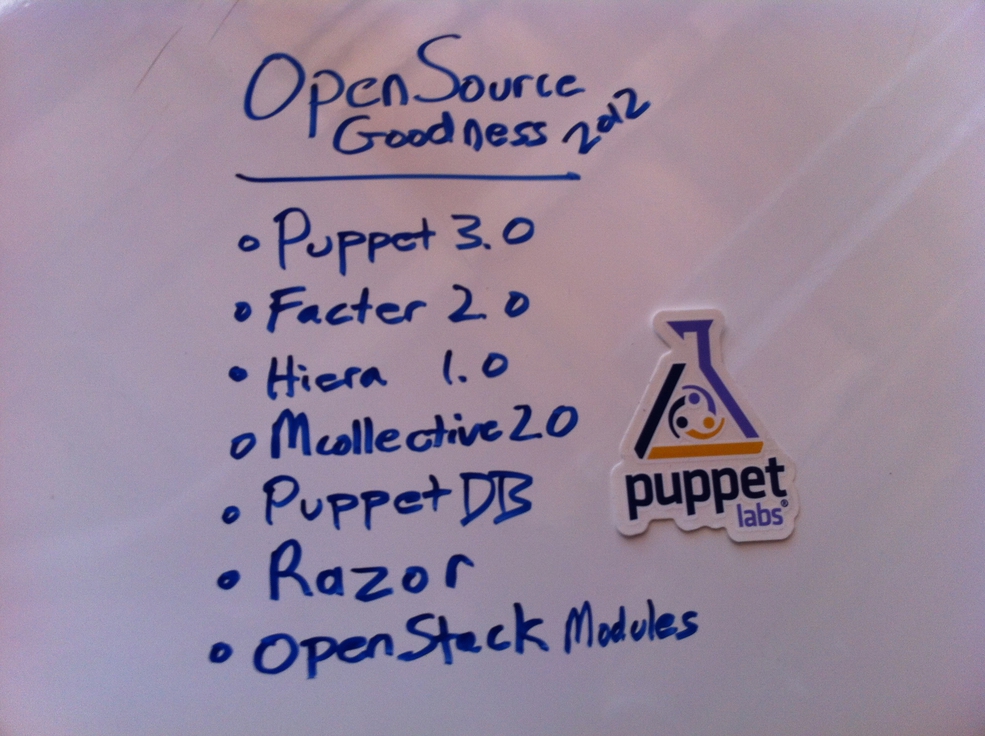 OpenSource
Goodness 2012
• Puppet 3.0
• Facter 2.0
• Hiera 1.0
• Mcollective 2.0
• PuppetDB
• Razor
• OpenStack Modules
puppet
labs®